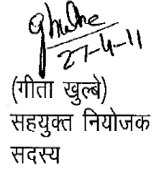 27-4-11
(गीता खुल्बे)
सहयुक्त नियोजक
सदस्य